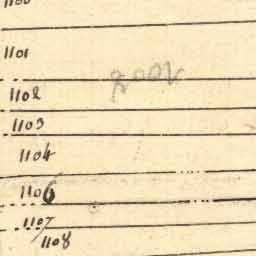 1100
1101
1102
1103
1104
1106
1107
1108